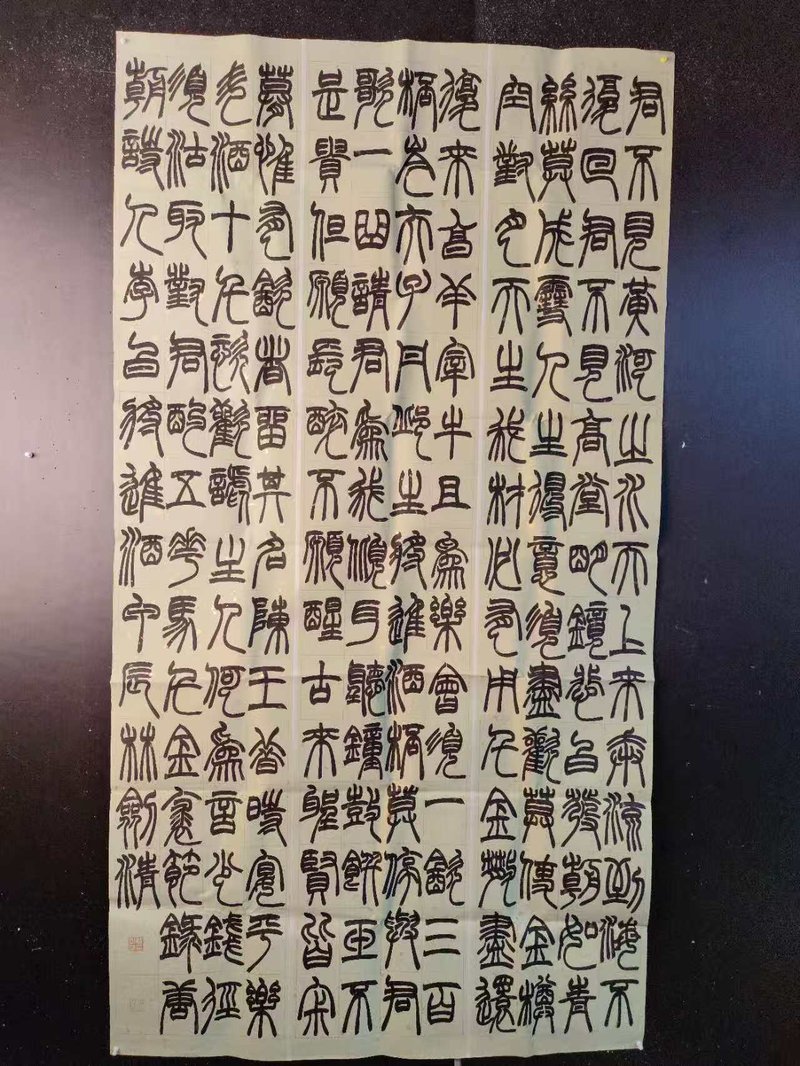 君不見黃河之水天上來奔流到海不
復回君不見高堂明鏡悲白髮朝如青
絲莫成雪人生得意須盡歡莫使金樽
空對月天生我材必有用千金散盡還
復來亯羊宰牛且為樂會須一飲三百
桮岑夫子丹邱生將進酒桮莫停與君
歌一曲請君為我傾耳聽鐘鼓饌玉不
足貴但願長醉不願醒古來聖賢皆寂
寞惟有飲者留其名陳王昔時宴平樂
斗酒十千恣歡謔主人何為言少錢徑
須沽取對君酌五花馬千金裘節錄唐
朝詩人李白將進酒甲辰林劍清